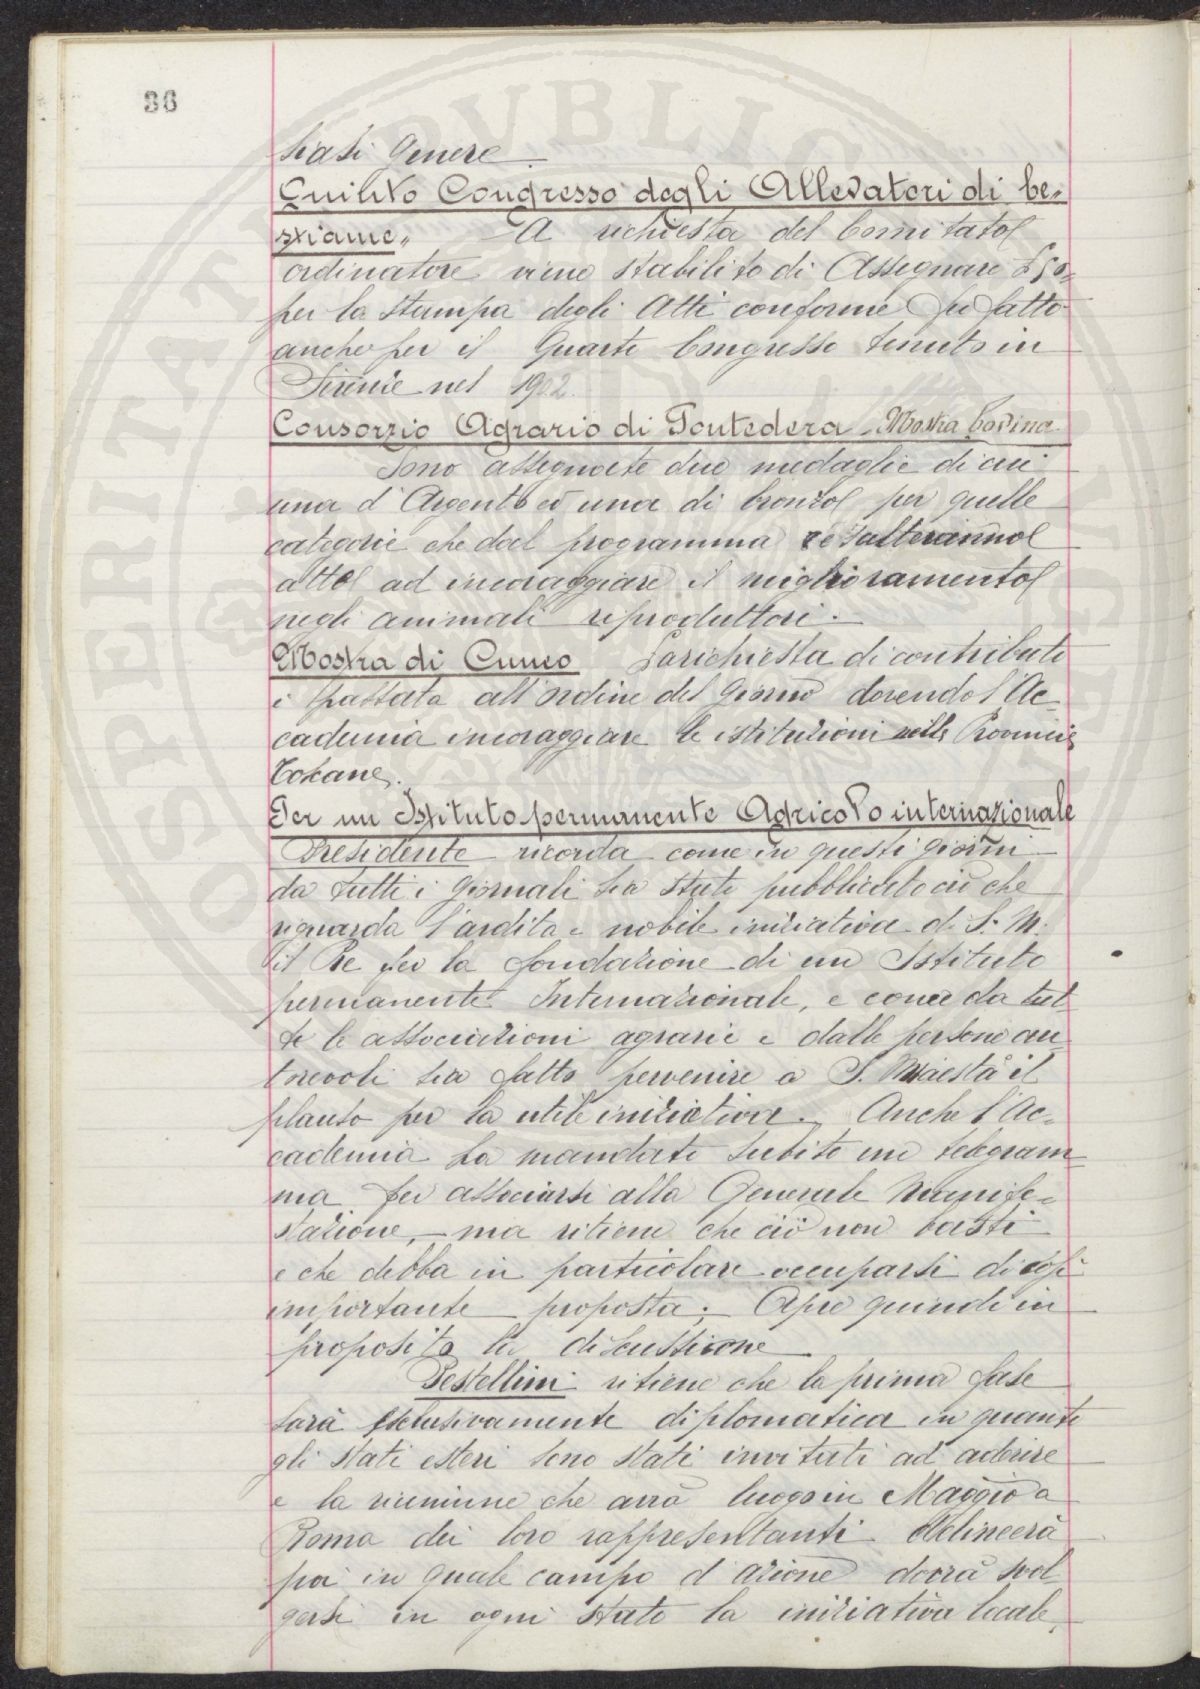 36
siasi genere.
Quinto Congresso degli Allevatori di be-
stiame. A richiesta del Comitato
ordinatore viene stabilito di assegnare £ 50.
per la stampa degli Atti conforme fu fatto
anche per il Quarto Congresso tenuto in
Firenze nel 1902.
Consorzio Agrario di Pontedera - Mostra bovina.
Sono assegnate due medaglie di cui
una d'Argento ed una di bronzo per quelle
categorie che dal programma resulteranno
atte ad incoraggiare il miglioramento
negli animali riproduttori.
Mostra di Cuneo La richiesta di contributo
è passata all'ordine del Giorno dovendo l'Ac-
cademia incoraggiare le istituzioni nelle Provincie
Toscane.
Per un Istituto permanente Agricolo internazionale
Presidente ricorda come in questi giorni
da tutti i giornali sia stato pubblicato ciò che
riguarda l'ardita e nobile iniziativa di S. M.
il Re per la fondazione di un Istituto
permanente Internazionale, e come da tut-
te le associazioni agrarie e dalle persone au-
torevoli sia fatto pervenire a S. Maestà il
plauso per la utile iniziativa. Anche l'Ac-
cademia ha mandato subito un telegram-
ma per associarsi alla Generale manife-
stazione, - ma ritiene che ciò non basti
e che debba in particolare occuparsi di così
importante proposta. Apre quindi in
proposito la discussione
Pestellini ritiene che la prima fase
sarà esclusivamente diplomatica in quanto
gli stati esteri sono stati invitati ad aderire
e la riunione che avrà luogo in Maggio a
Roma dei loro rappresentanti delineerà
poi in quale campo d'azione dovrà svol-
gersi in ogni stato la iniziativa locale,
SOSPERITATI PVBLICAE AVGENDAE